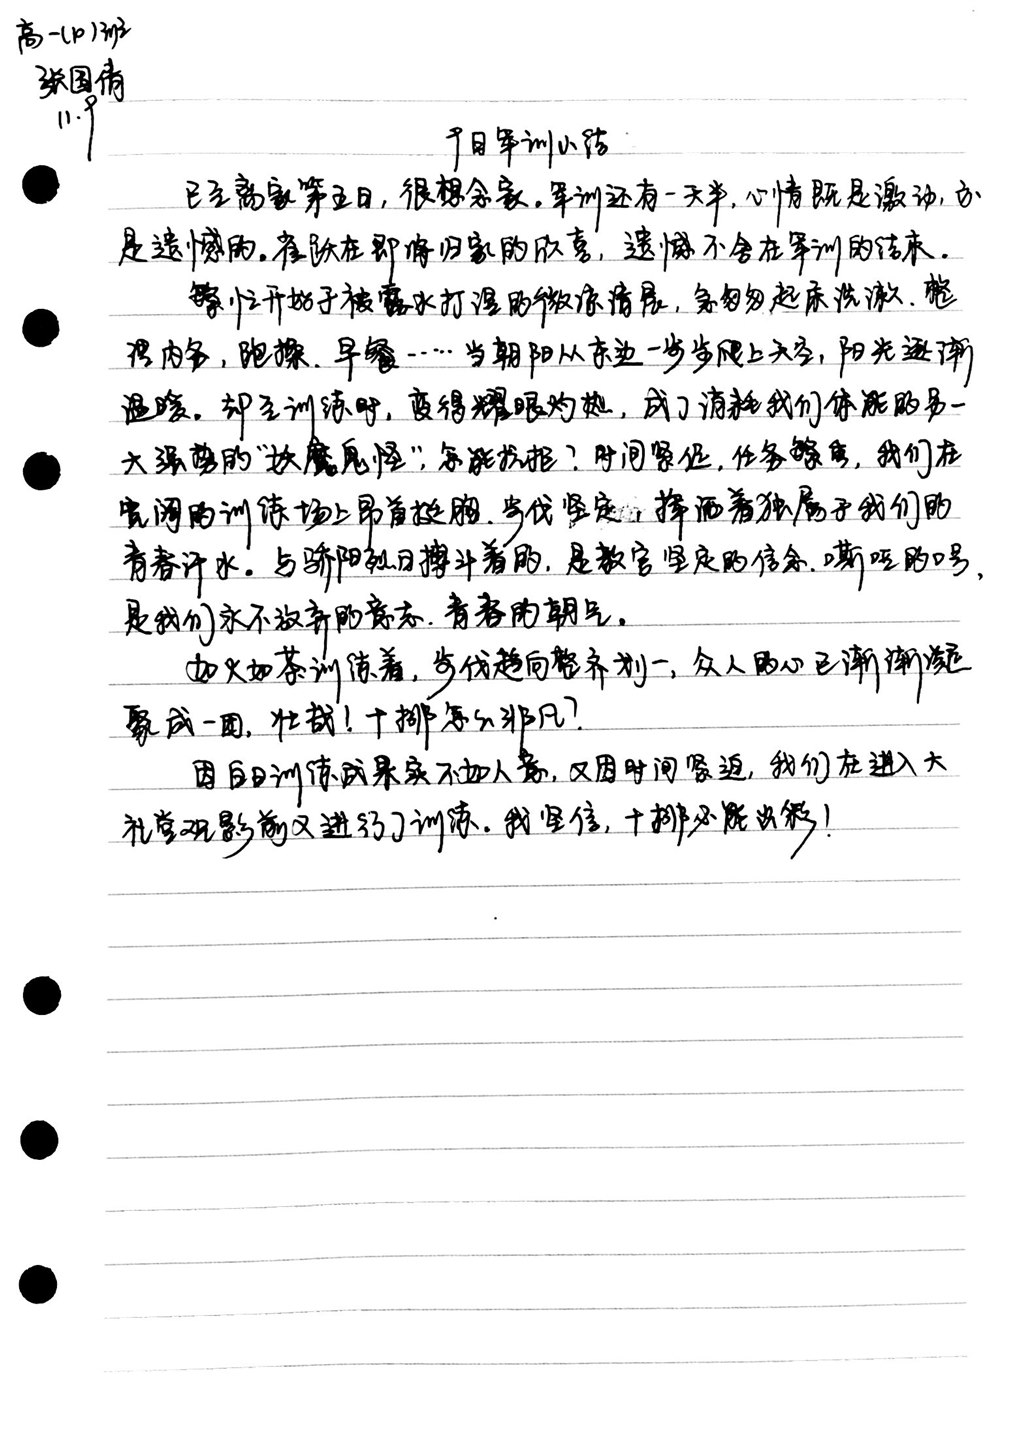 高一(10)班
张国倩
11.9
今日军训小结
已至离家第五日，很想念家。军训还有一天半，心情既是激动，亦
是遗憾的。雀跃在即将归家的欣喜，遗憾不舍在军训的结束。
繁忙开始于被露水打湿的微凉清晨，急匆匆起床洗漱、整
理内务，跑操、早餐……当朝阳从东边一步步爬上天空，阳光逐渐
温暖。却至训练时，变得耀眼灼热，成了消耗我们体能的另一
大强势的“妖魔鬼怪”，怎能抗拒？时间紧促，任务繁重，我们在
宽阔的训练场上昂首挺胸、步伐坚定，挥洒着独属于我们的
青春汗水。与骄阳烈日搏斗着的，是教官坚定的信念、嘶哑的口号，
是我们永不放弃的意志、青春的朝气。
如火如荼训练着，步伐趋向整齐划一，众人的心已渐渐凝
聚成一团，壮哉！十排怎么非凡？
因白日训练成果实不如人意，又因时间紧迫，我们在进入大
礼堂观影前又进行了训练。我坚信，十排必能出彩！